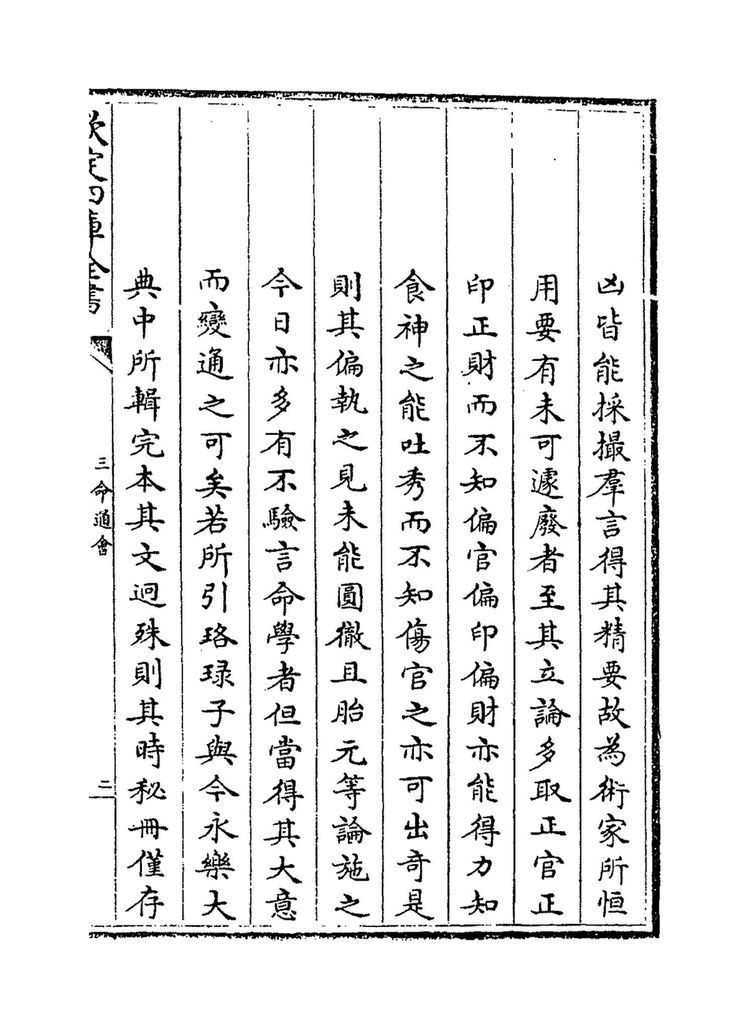 凶皆能採撮羣言得其精要故為術家所恒
用要有未可遽廢者至其立論多取正官正
印正財而不知偏官偏印偏財亦能得力知
食神之能吐秀而不知傷官之亦可出奇是
則其偏執之見未能圓徹且胎元等論施之
今日亦多有不驗言命學者但當得其大意
而變通之可矣若所引珞琭子與今永樂大
典中所輯完本其文迥殊則其時秘冊僅存
欽定四庫全書
三命通會
二